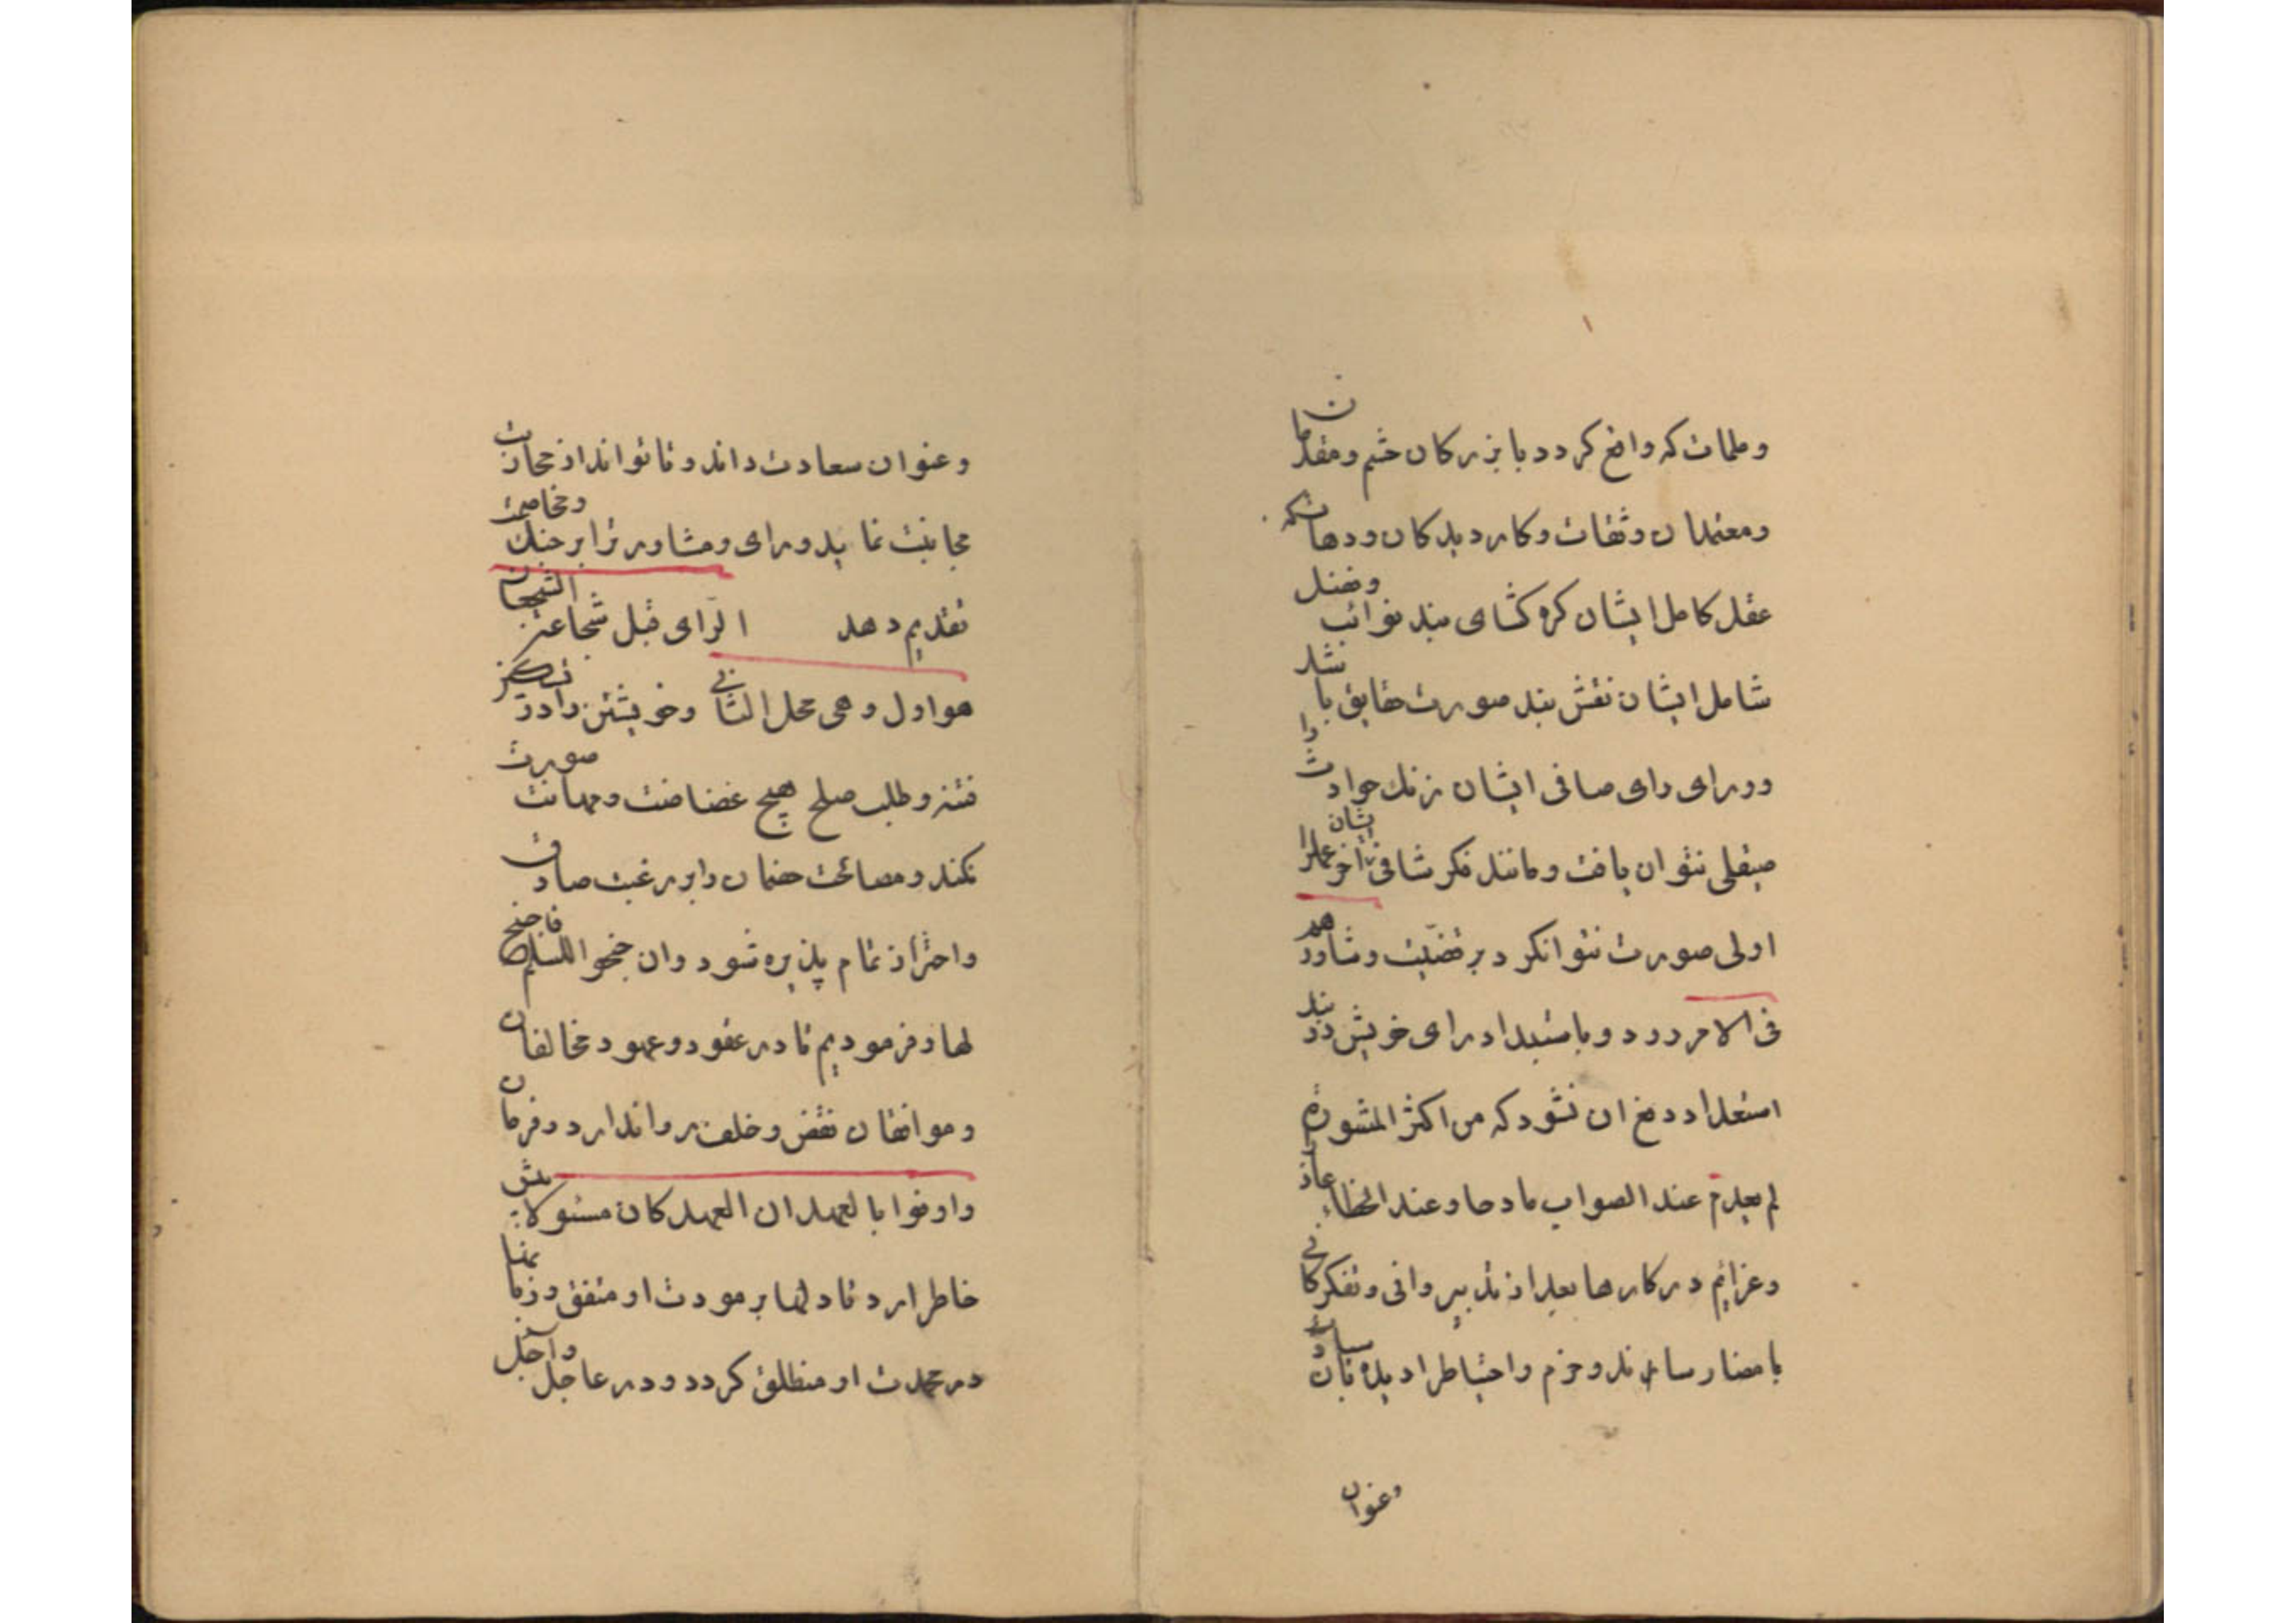 وملمات که واقع کردد با بزرکان حشم ومقدمان
ومعتمدان وثقات وکاردیدکان ودهات که
عقل کامل ایشان کره کشای بند نوائب وفضل
شامل ایشان نقش بند صورت حقایق باشد
وورای رای صافی ایشان زنک حوادث را
صیقلی نتوان یافت ومانند فکر شافی ایشان آخر عمل را
اولی صورت نتوانکرد بر قضیت وشاورهم
فی الامر رود وباستبداد رای خویش در بند
استعداد دمغ ان نشود که من اکثر المشورة
لم یعدم عند الصواب مادحا وعند الخطاء عاذرا
وعزایم در کارها بعد از تدبیر وافی وتفکر کافی
بامضا رساند وحزم واحتیاط را دیدبان سیادت
وعنوان
وعنوان سعادت داند وتا تواند از محاربت
مجانبت نماید ورای ومشاورترا بر جنک ومخاصمت
تقدیم دهد الرّای قبل شجاعة الشجعان
هو اول وهی محل الثانی وخویشتن را در تسکین
فتنه وطلب صلح هیچ غضاضت ومهانت صورت
نکند ومصالحت خصمان را بر رغبت صادق
واحتراز تمام پذیره شود وان جنحوا للسلم فاجنح
لها وفرمودیم تا در عقود وعهود مخالفان
وموافقان نقض وخلف روا ندارد وفرمان
واوفوا بالعهد ان العهد کان مسئولا پیش
خاطر ارد تا دلها بر مودت او متفق وزبانها
در محمدت او منطلق کردد ودر عاجل وآجل